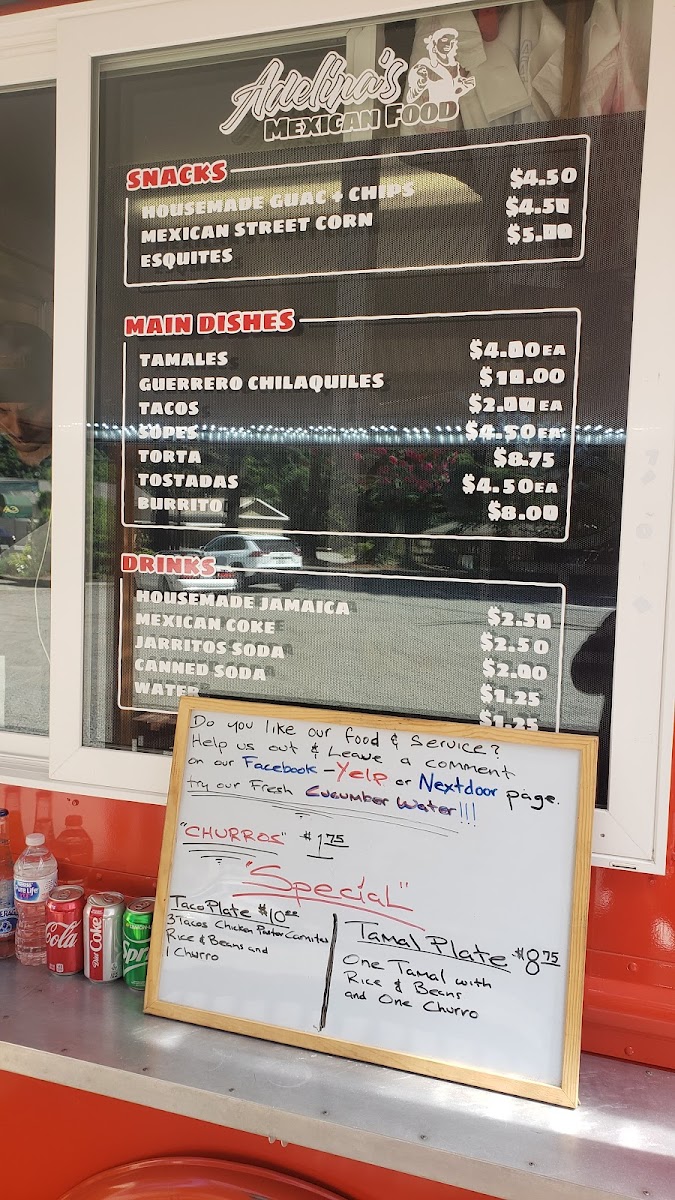 Adelina's
MEXICAN FOOD
SNACKS
HOUSEMADE GUAC + CHIPS $4.50
MEXICAN STREET CORN $4.50
ESQUITES $5.00
MAIN DISHES
TAMALES $4.00 EA
GUERRERO CHILAQUILES $10.00
TACOS $2.00 EA
SOPES $4.50 EA
TORTA $8.75
TOSTADAS $4.50 EA
BURRITO $8.00
DRINKS
HOUSEMADE JAMAICA $2.50
MEXICAN COKE $2.50
JARRITOS SODA $2.00
CANNED SODA $1.25
WATER $1.25
Do you like our food & Service?
Help us out & Leave a comment
on our Facebook - Yelp or Nextdoor page.
try our Fresh Cucumber Water!!!
"CHURROS" $1.75
"Special"
Taco Plate $10.00
3 Tacos Chicken Pastor Carnitas
Rice & Beans and
1 Churro
Tamal Plate $8.75
One Tamal with
Rice & Beans
and One Churro
Pure Life
Cola
Diet Coke
Spr